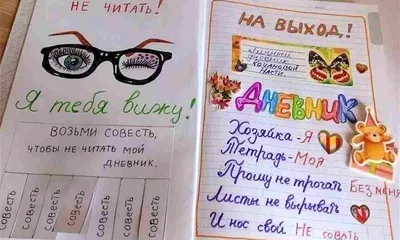 НЕ ЧИТАТЬ!
Я тебя вижу!
ВОЗЬМИ СОВЕСТЬ,
ЧТОБЫ НЕ ЧИТАТЬ МОЙ
ДНЕВНИК.
СОВЕСТЬ
СОВЕСТЬ
СОВЕСТЬ
СОВЕСТЬ
СОВЕСТЬ
СОВЕСТЬ
НА ВЫХОД!
Личный
дневник
Настн.
ДНЕВНИК
Хозяйка-Я
Тетрадь-Моя
Прошу не трогать БЕЗ МЕНЯ
Листы не вырывать
И нос свой НЕ СОВАТЬ